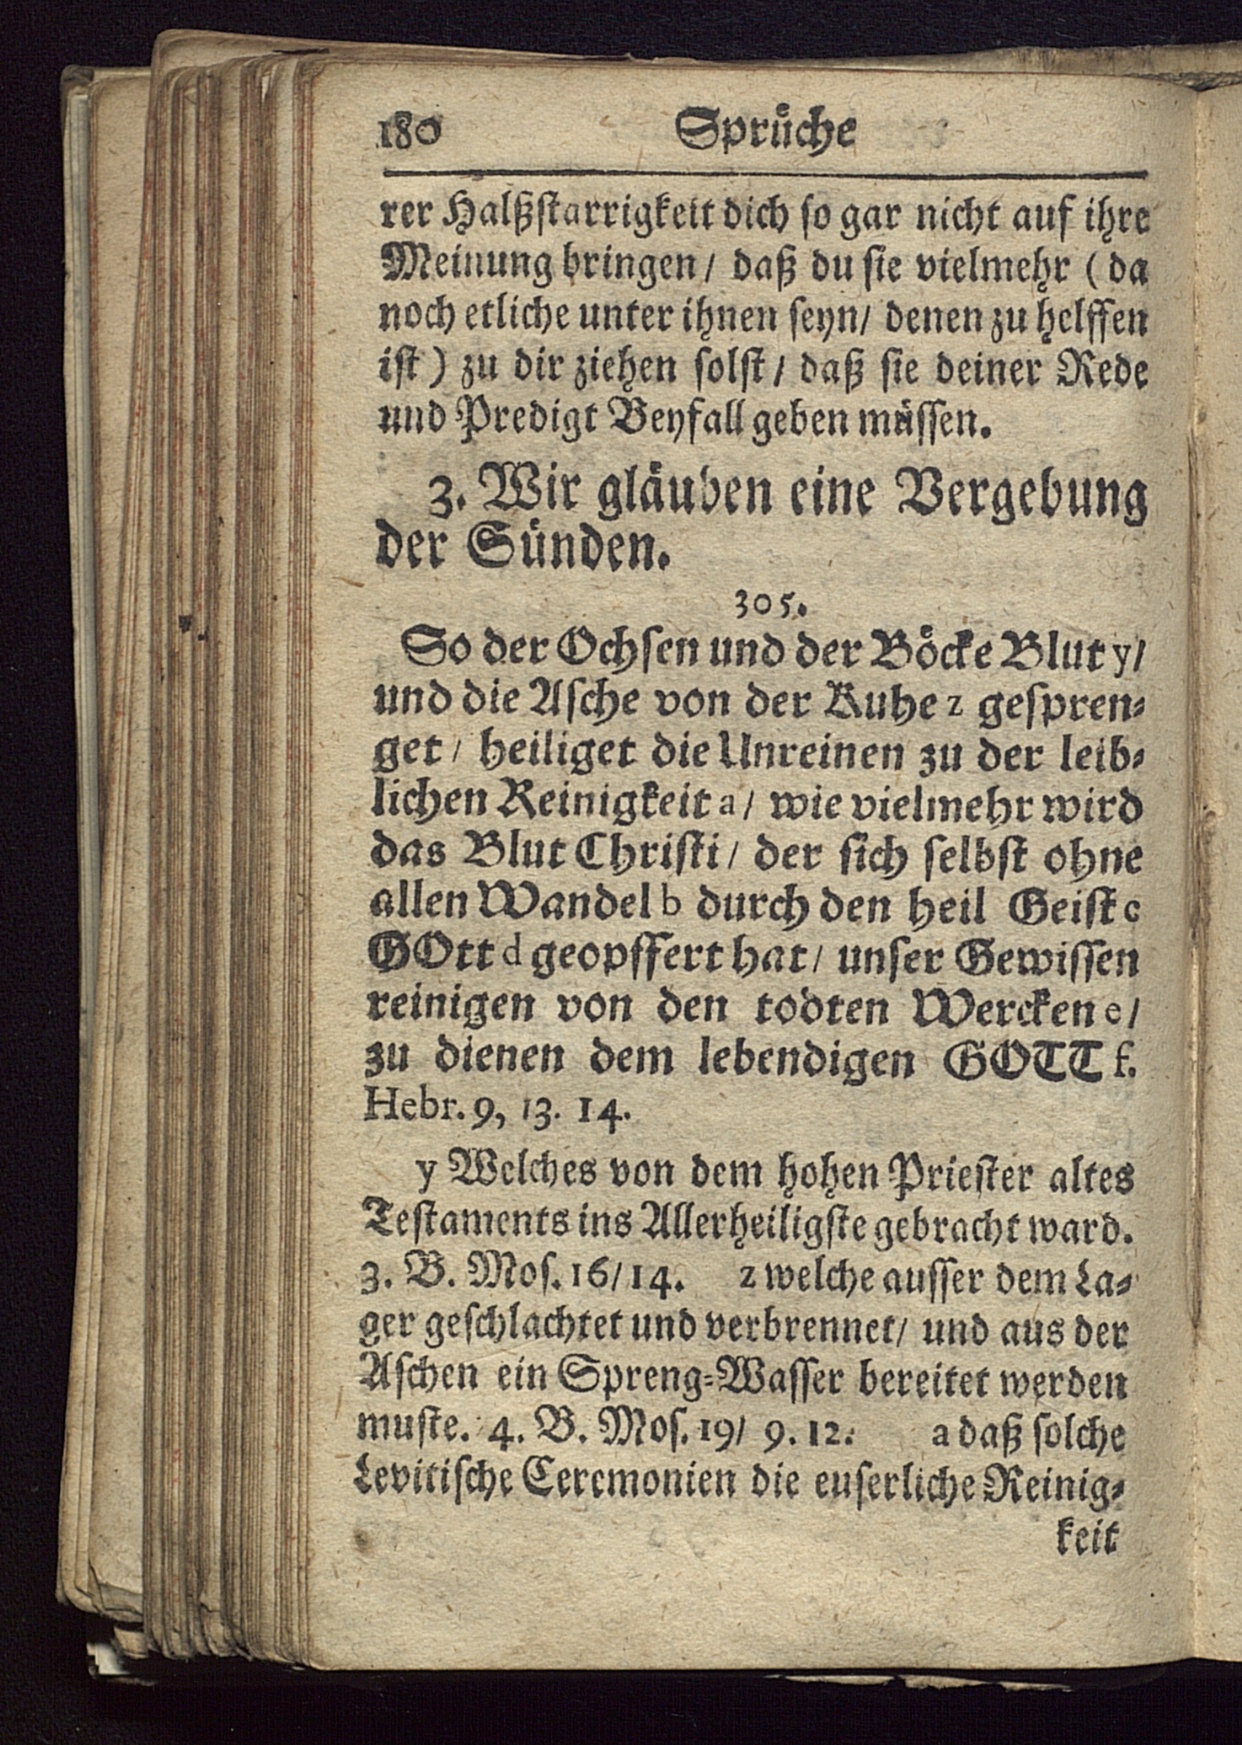 180 Sprüche
rer Halßstarrigkeit dich so gar nicht auf ihre
Meinung bringen / daß du sie vielmehr ( da
noch etliche unter ihnen seyn / denen zu helffen
ist ) zu dir ziehen solst / daß sie deiner Rede
und Predigt Beyfall geben müssen.
3. Wir gläuben eine Vergebung
der Sünden.
305.
So der Ochsen und der Böcke Blut y /
und die Asche von der Kuhe z gespren-
get / heiliget die Unreinen zu der leib-
lichen Reinigkeit a / wie vielmehr wird
das Blut Christi / der sich selbst ohne
allen Wandel b durch den heil Geist c
GOtt d geopffert hat / unser Gewissen
reinigen von den todten Wercken e /
zu dienen dem lebendigen GOTT f.
Hebr. 9, 13. 14.
y Welches von dem hohen Priester altes
Testaments ins Allerheiligste gebracht ward.
3. B. Mos. 16 / 14. z welche ausser dem La-
ger geschlachtet und verbrennet / und aus der
Aschen ein Spreng-Wasser bereitet werden
muste. 4. B. Mos. 19 / 9. 12. a daß solche
Levitische Ceremonien die euserliche Reinig-
keit